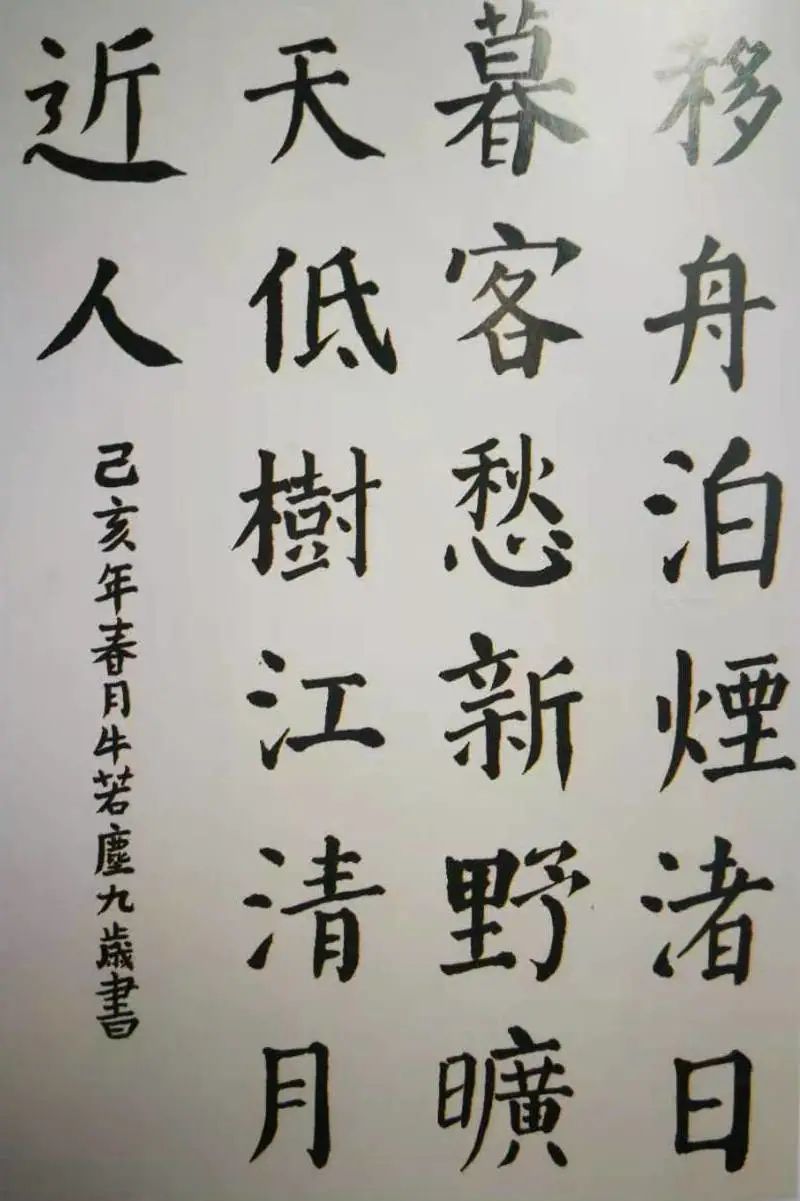 移舟泊煙渚日
暮客愁新野曠
天低樹江清月
近人
己亥年春月牛若塵九歲書